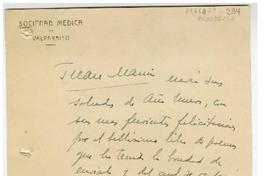 SOCIEDAD MEDICA
DE
VALPARAISO
Juan Marín envía sus
saludos de Año Nuevo, con
sus mas fervientes felicitaciones
por el bellísimo libro de poemas
que ha tenido la bondad de
enviarle y del cual